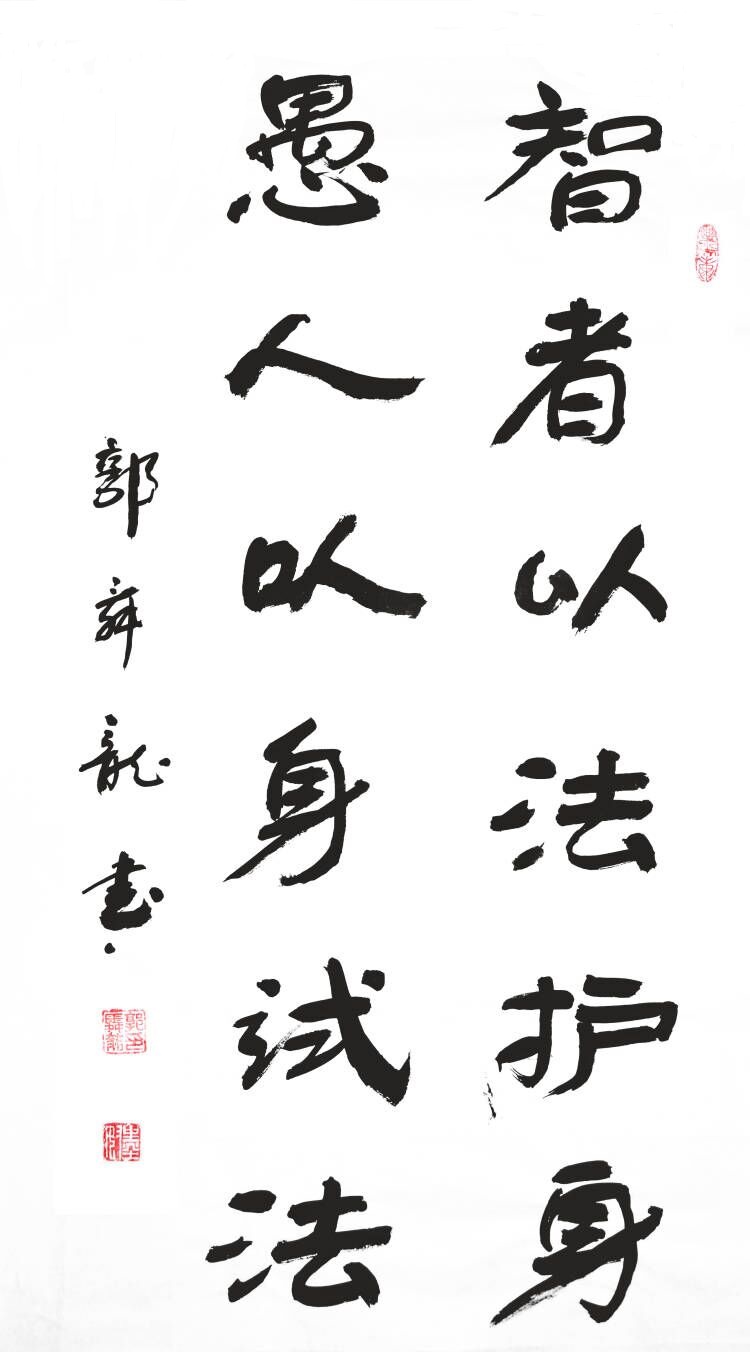 智者以法护身
愚人以身试法
郭舞龙书